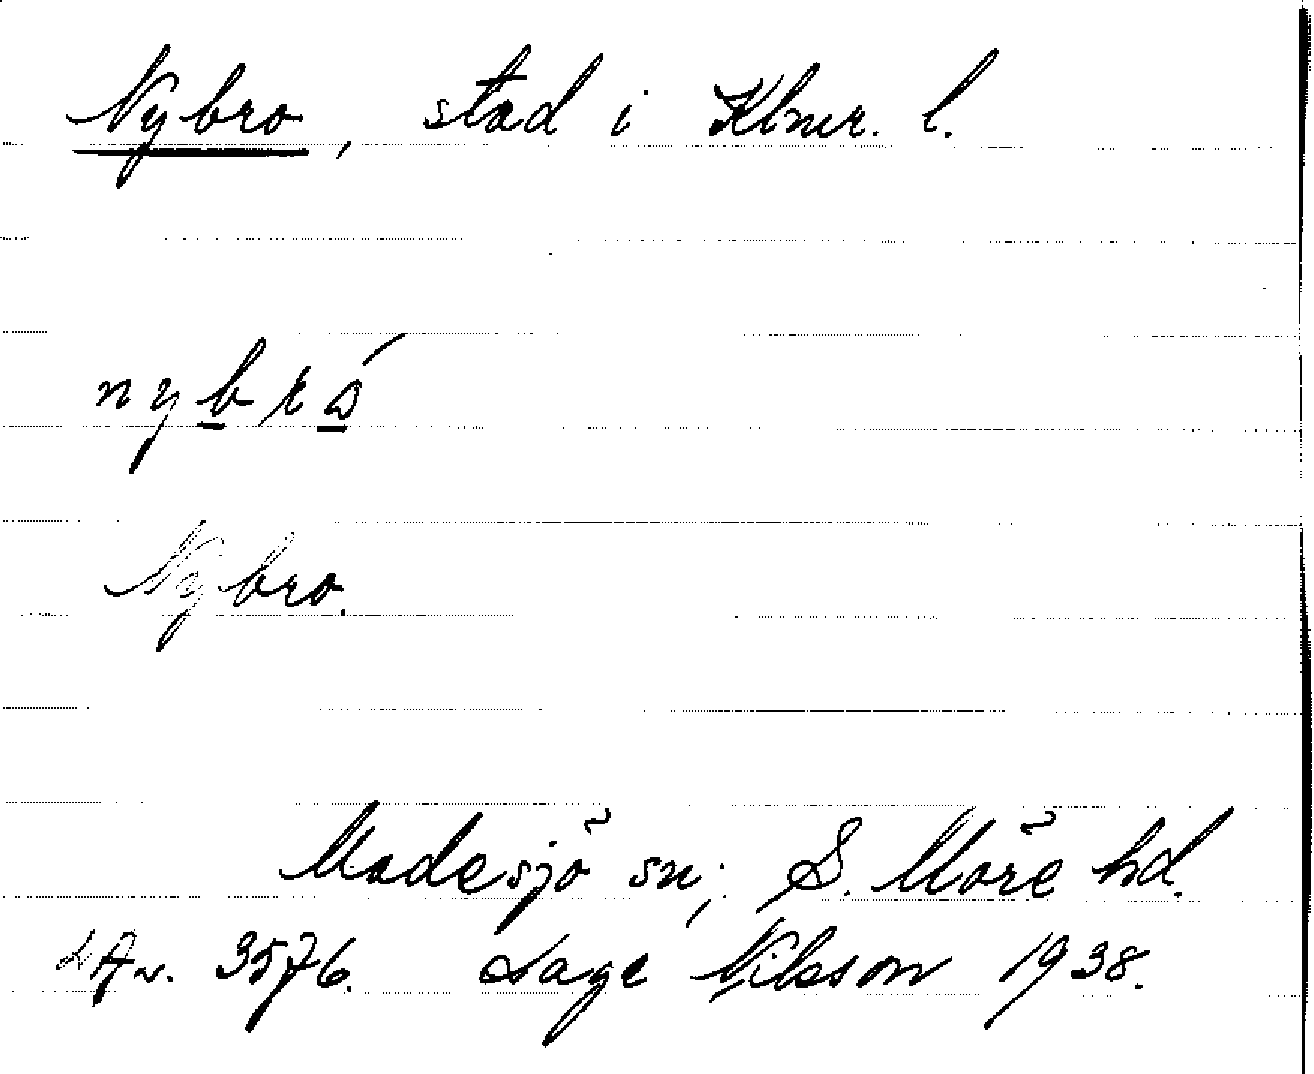 Nybro, stad i Klmr. l.
Nybro.
Madesjö sn; S. Möre hd.
3576. Sage Nilsson 1938.